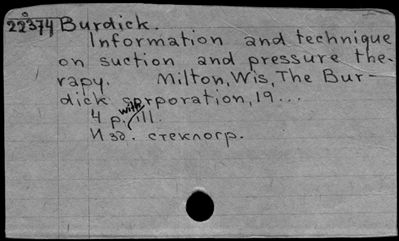 22374 Burdick.
Information and technique
on suction and pressure the-
rapy. Milton, Wis, The Bur-
dick sorporation, 19...
4 p. with ill.
Изд. стеклогр.